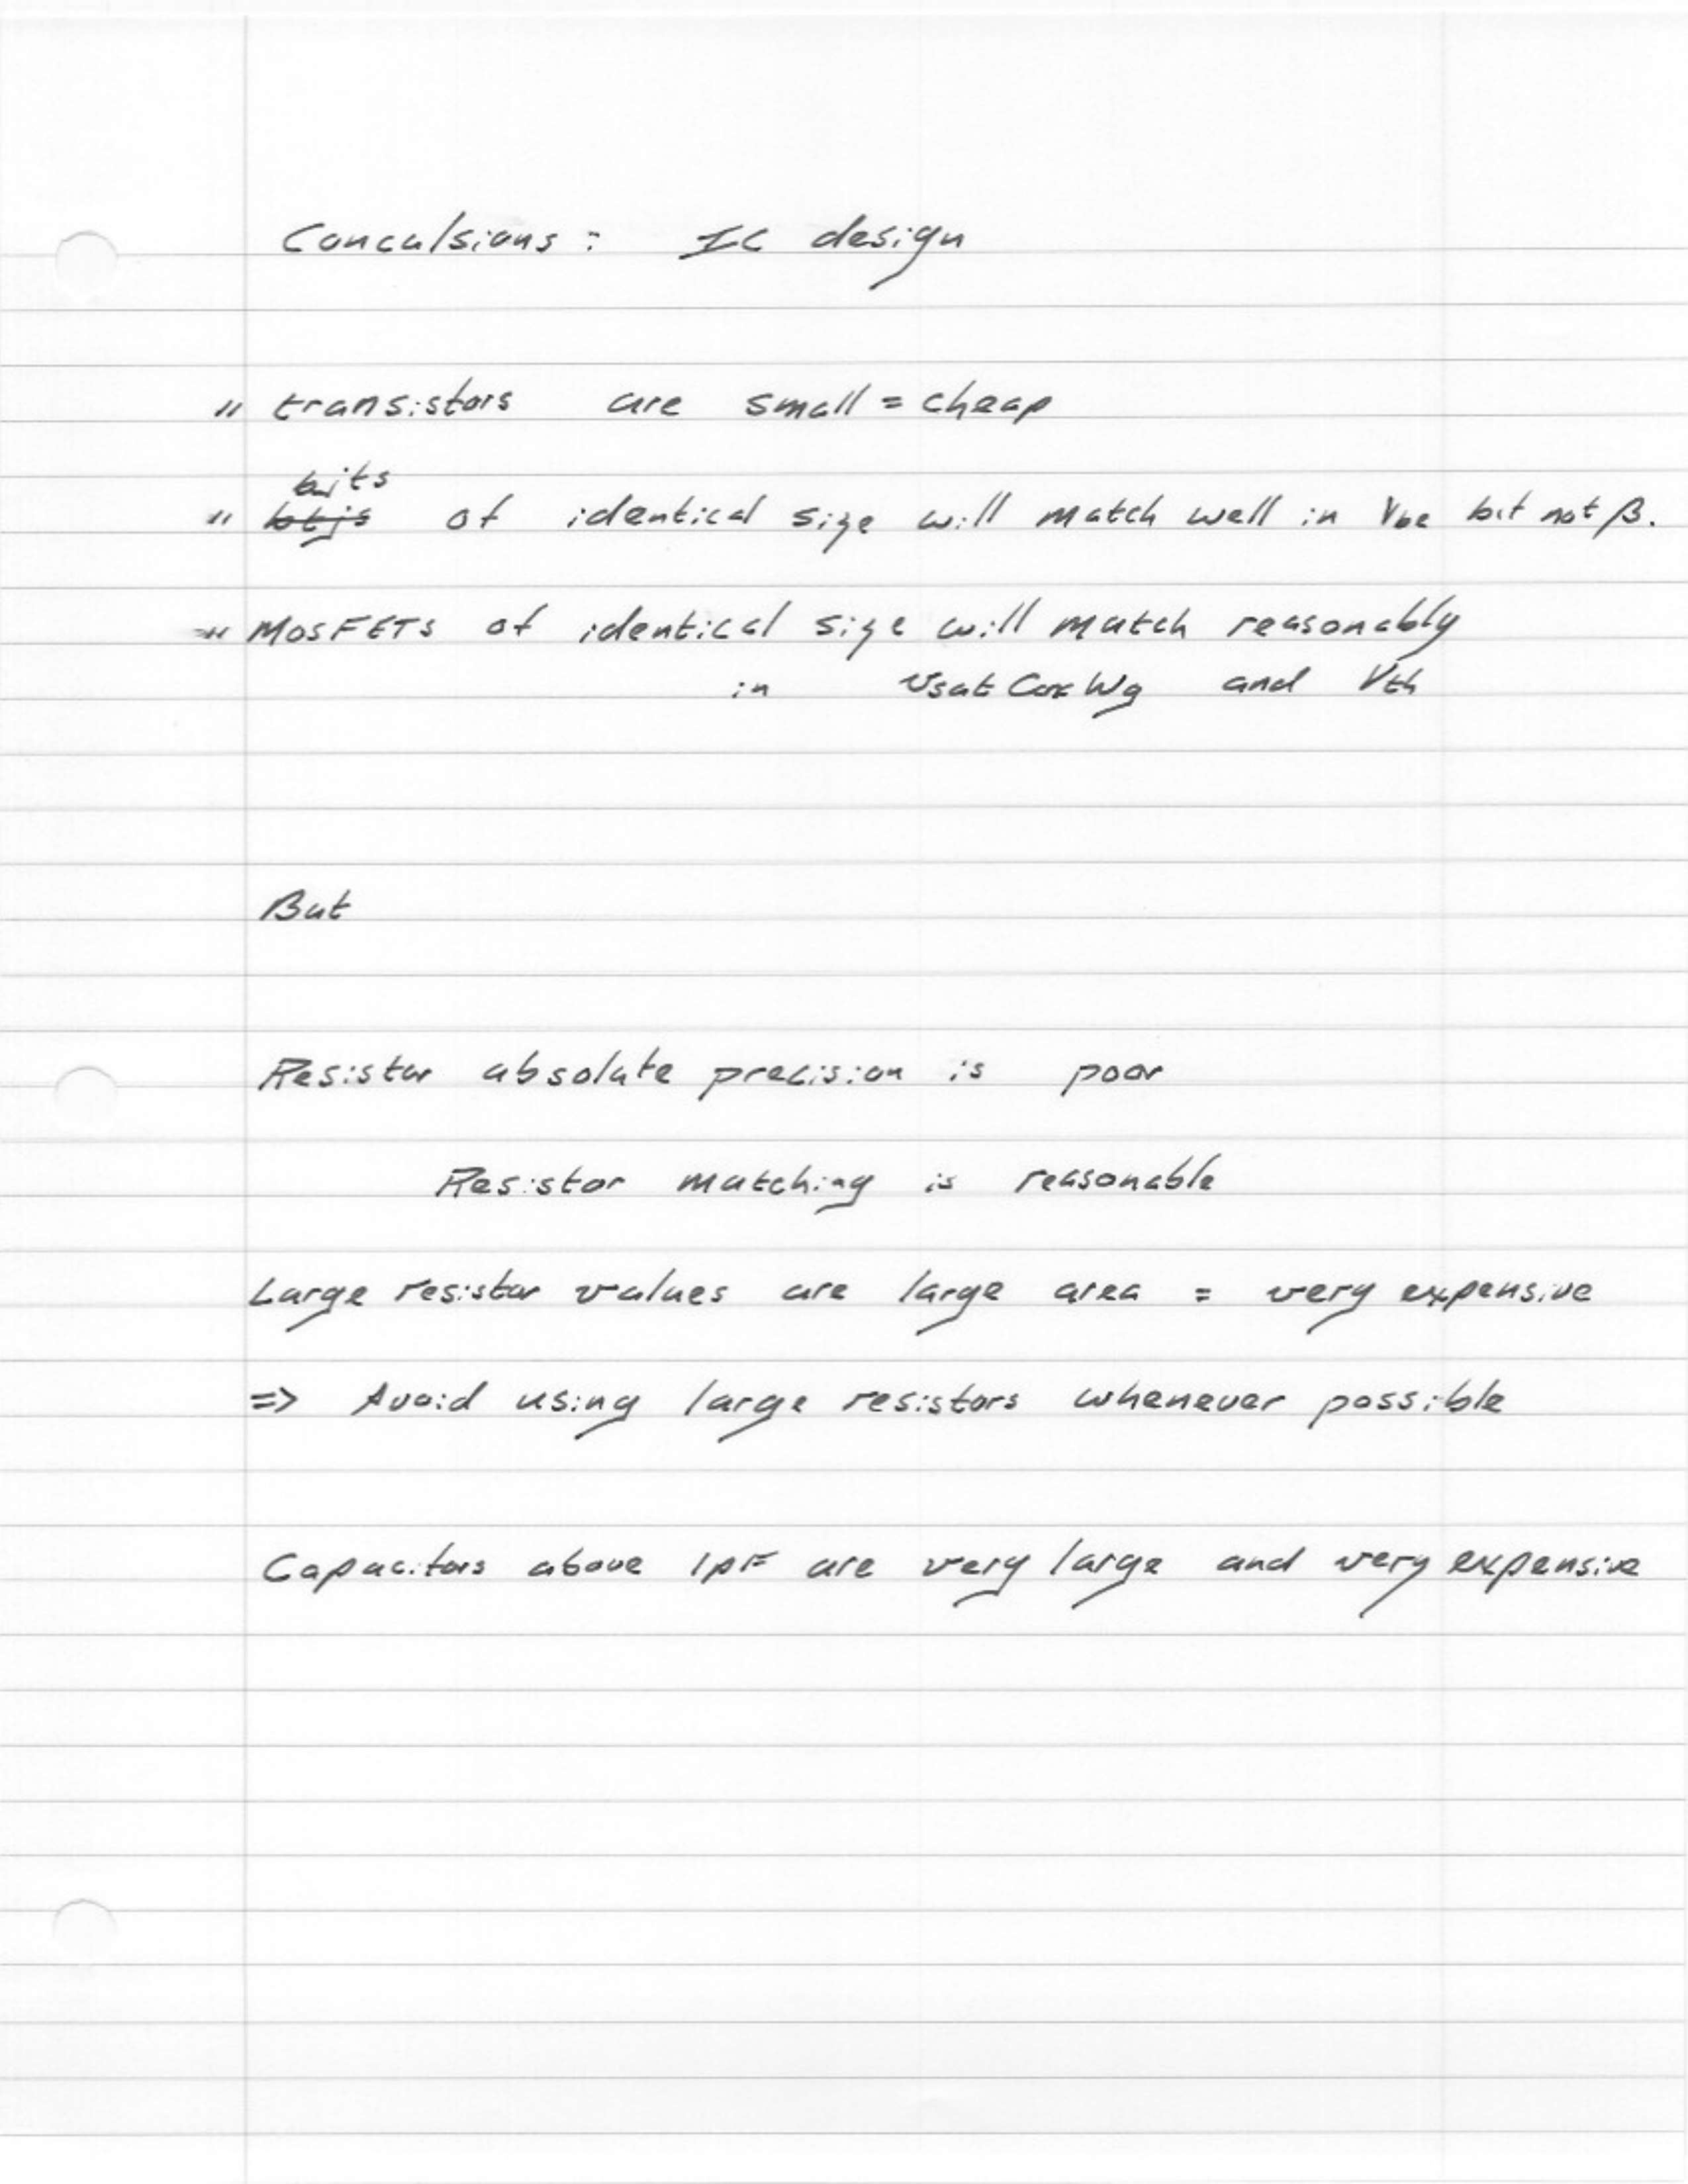 Conculsions: IC design
" transistors are small = cheap
" of identical size will match well in Vbe but not β.
" MOSFETs of identical size will match reasonably
in vsat Cox Wg and Vth
But
Resistor absolute precision is poor
Resistor matching is reasonable
Large resistor values are large area = very expensive
=> Avoid using large resistors whenever possible
Capacitors above 1pF are very large and very expensive